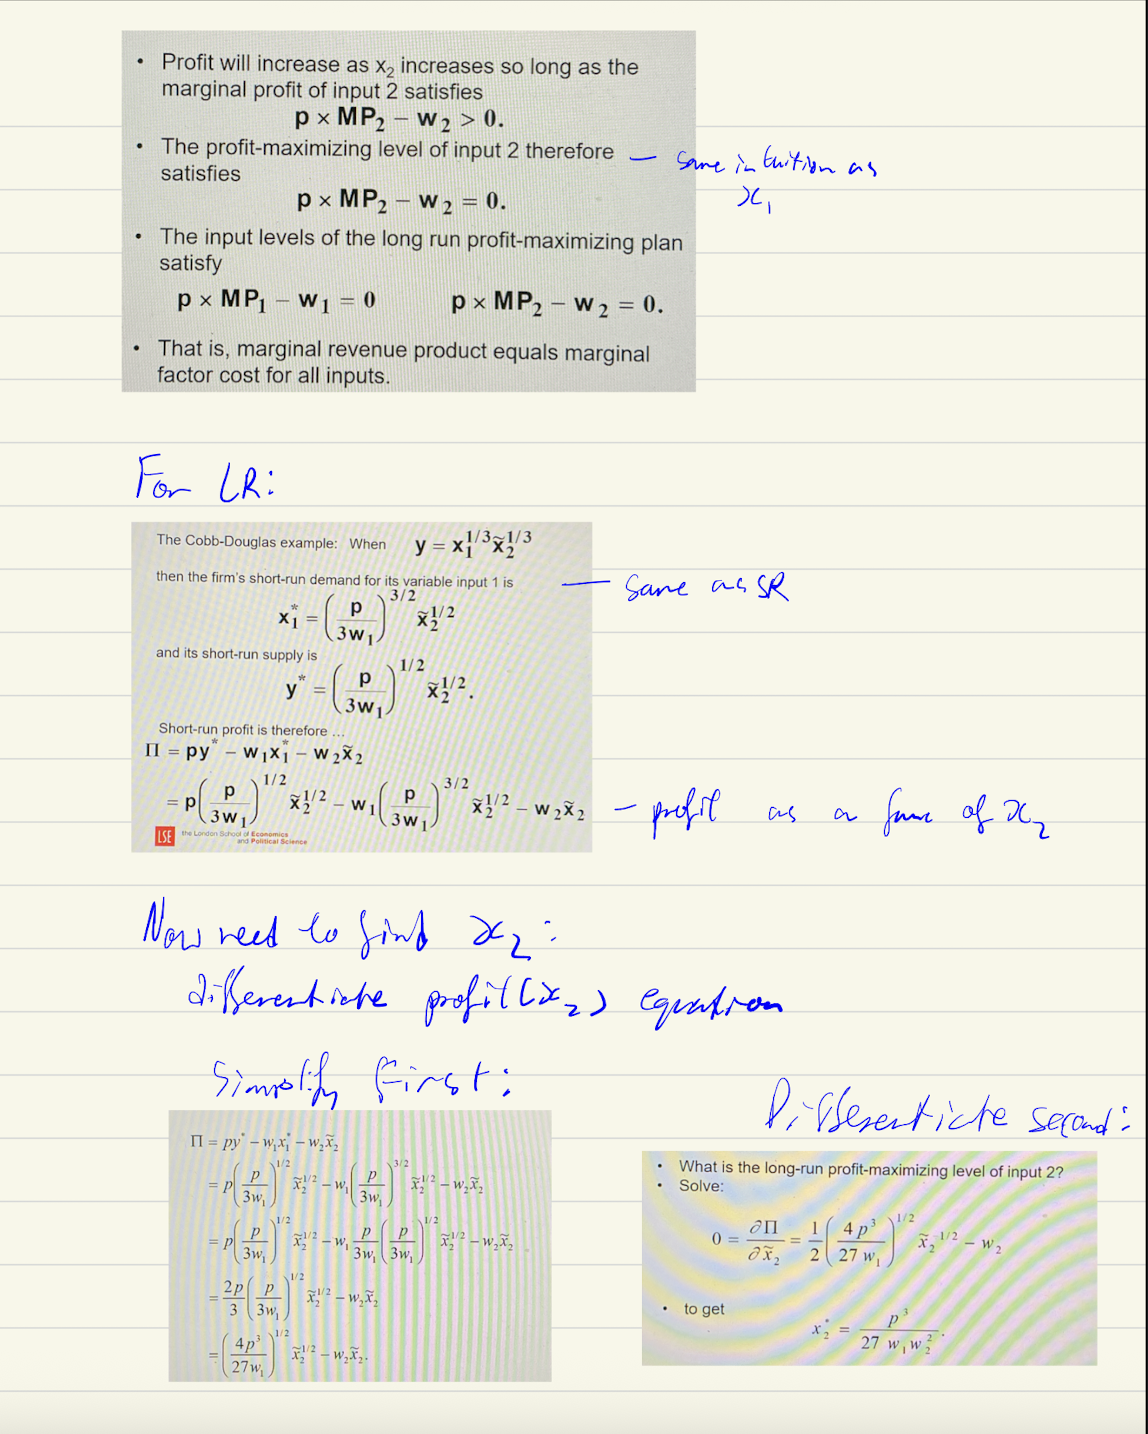 • Profit will increase as x₂ increases so long as the
marginal profit of input 2 satisfies
p × MP₂ − w₂ > 0.
• The profit-maximizing level of input 2 therefore
satisfies
— same intuition as
x₁
p × MP₂ − w₂ = 0.
• The input levels of the long run profit-maximizing plan
satisfy
p × MP₁ − w₁ = 0    p × MP₂ − w₂ = 0.
• That is, marginal revenue product equals marginal
factor cost for all inputs.
For LR:
The Cobb-Douglas example: When y = x₁^{1/3} x̃₂^{1/3}
then the firm's short-run demand for its variable input 1 is
— Same as SR
x₁* = (p/3w₁)^{3/2} x̃₂^{1/2}
and its short-run supply is
y* = (p/3w₁)^{1/2} x̃₂^{1/2}.
Short-run profit is therefore ...
Π = py* − w₁x₁* − w₂x̃₂
= p(p/3w₁)^{1/2} x̃₂^{1/2} − w₁(p/3w₁)^{3/2} x̃₂^{1/2} − w₂x̃₂
— profit as a func of x₂
LSE the London School of Economics
and Political Science
Now need to find x₂:
differentiate profit(x₂) equation
Simplify First:
Π = py* − w₁x₁* − w₂x̃₂
= p(p/3w₁)^{1/2} x̃₂^{1/2} − w₁(p/3w₁)^{3/2} x̃₂^{1/2} − w₂x̃₂
= p(p/3w₁)^{1/2} x̃₂^{1/2} − w₁ p/3w₁ (p/3w₁)^{1/2} x̃₂^{1/2} − w₂x̃₂
= 2p/3 (p/3w₁)^{1/2} x̃₂^{1/2} − w₂x̃₂
= (4p³/27w₁)^{1/2} x̃₂^{1/2} − w₂x̃₂.
Differentiate second:
• What is the long-run profit-maximizing level of input 2?
• Solve:
0 = ∂Π/∂x̃₂ = 1/2 (4p³/27w₁)^{1/2} x̃₂^{−1/2} − w₂
• to get
x₂* = p³/27w₁w₂².